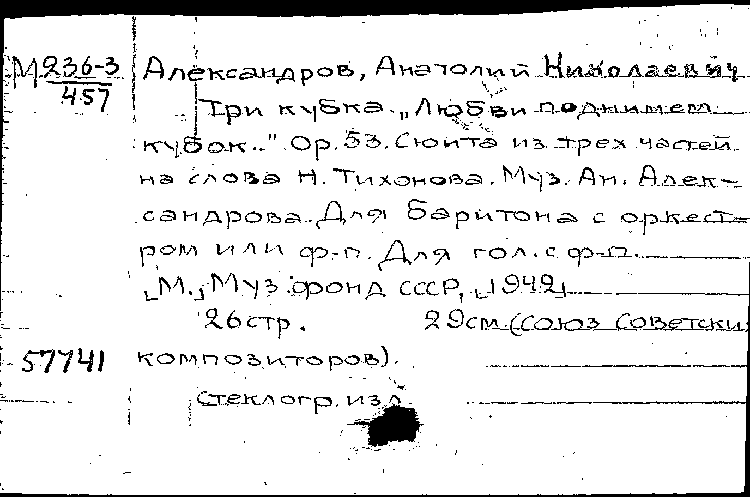 М236-3 Александров, Анатолий Николаевич
457
Три кубка. „Любви поднимем
кубок..." Ор. 53. Сюита из трех частей
на слова Н. Тихонова. Муз. Ан. Алек-
сандрова. Для баритона с оркест-
ром или ф-п. Для гол. с ф-п.
[М.] Муз. фонд СССР, [1942]
26 стр. 29 см. (Союз советски
57741 композиторов).
Стеклогр. изд